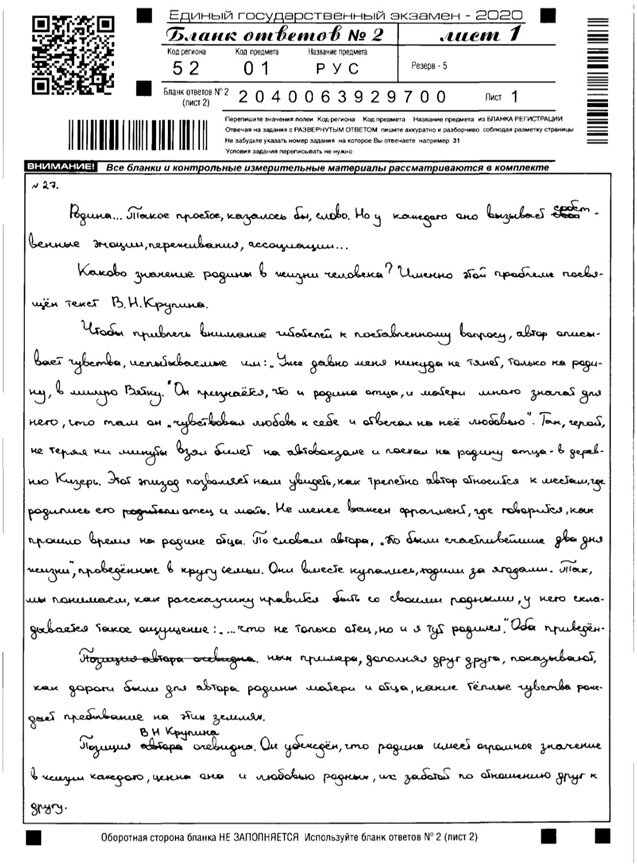 Единый государственный экзамен - 2020
Бланк ответов № 2 лист 1
Код региона Код предмета Название предмета
52 01 РУС Резерв - 5
Бланк ответов № 2 (лист 2) 2040063929700 Лист 1
Перепишите значения полей Код региона Код предмета Название предмета из БЛАНКА РЕГИСТРАЦИИ
Отвечая на задания с РАЗВЕРНУТЫМ ОТВЕТОМ пишите аккуратно и разборчиво соблюдая разметку страницы
Не забудьте указать номер задания на которое Вы отвечаете например 31
Условия задания переписывать не нужно
ВНИМАНИЕ! Все бланки и контрольные измерительные материалы рассматриваются в комплекте
№ 27.
Родина... Такое простое, казалось бы, слово. Но у каждого оно вызывает собст-
венные эмоции, переживания, ассоциации...
Каково значение родины в жизни человека? Именно этой проблеме посвя-
щён текст В.Н.Крупина.
Чтобы привлечь внимание читателей к поставленному вопросу, автор описы-
вает чувства, испытываемые им: „Уже давно меня никуда не тянет, только на роди-
ну, в милую Вятку." Он признаётся, что и родина отца, и матери много значат для
него, что там он „чувствовал любовь к себе и отвечал на неё любовью". Так, герой,
не теряя ни минуты взял билет на автовокзале и поехал на родину отца - в дерев-
ню Кизерь. Этот эпизод позволяет нам увидеть, как трепетно автор относится к местам, где
родились его родители отец и мать. Не менее важен фрагмент, где говорится, как
прошло время на родине отца. По словам автора, „то были счастливейшие два дня
жизни", проведённые в кругу семьи. Они вместе купались, ходили за ягодами. Так,
мы понимаем, как рассказчику нравится быть со своими родными, у него скла-
дывается такое ощущение: „...что не только отец, но и я тут родился." Оба приведён-
Позиция автора очевидна. ных примера, дополняя друг друга, показывают,
как дороги были для автора родины матери и отца, какие тёплые чувства рож-
дает пребывание на этих землях.
Позиция автора В Н Крупина очевидна. Он убеждён, что родина имеет огромное значение
в жизни каждого, ценна она и любовью родных, их заботой по отношению друг к
другу.
Оборотная сторона бланка НЕ ЗАПОЛНЯЕТСЯ Используйте бланк ответов № 2 (лист 2)